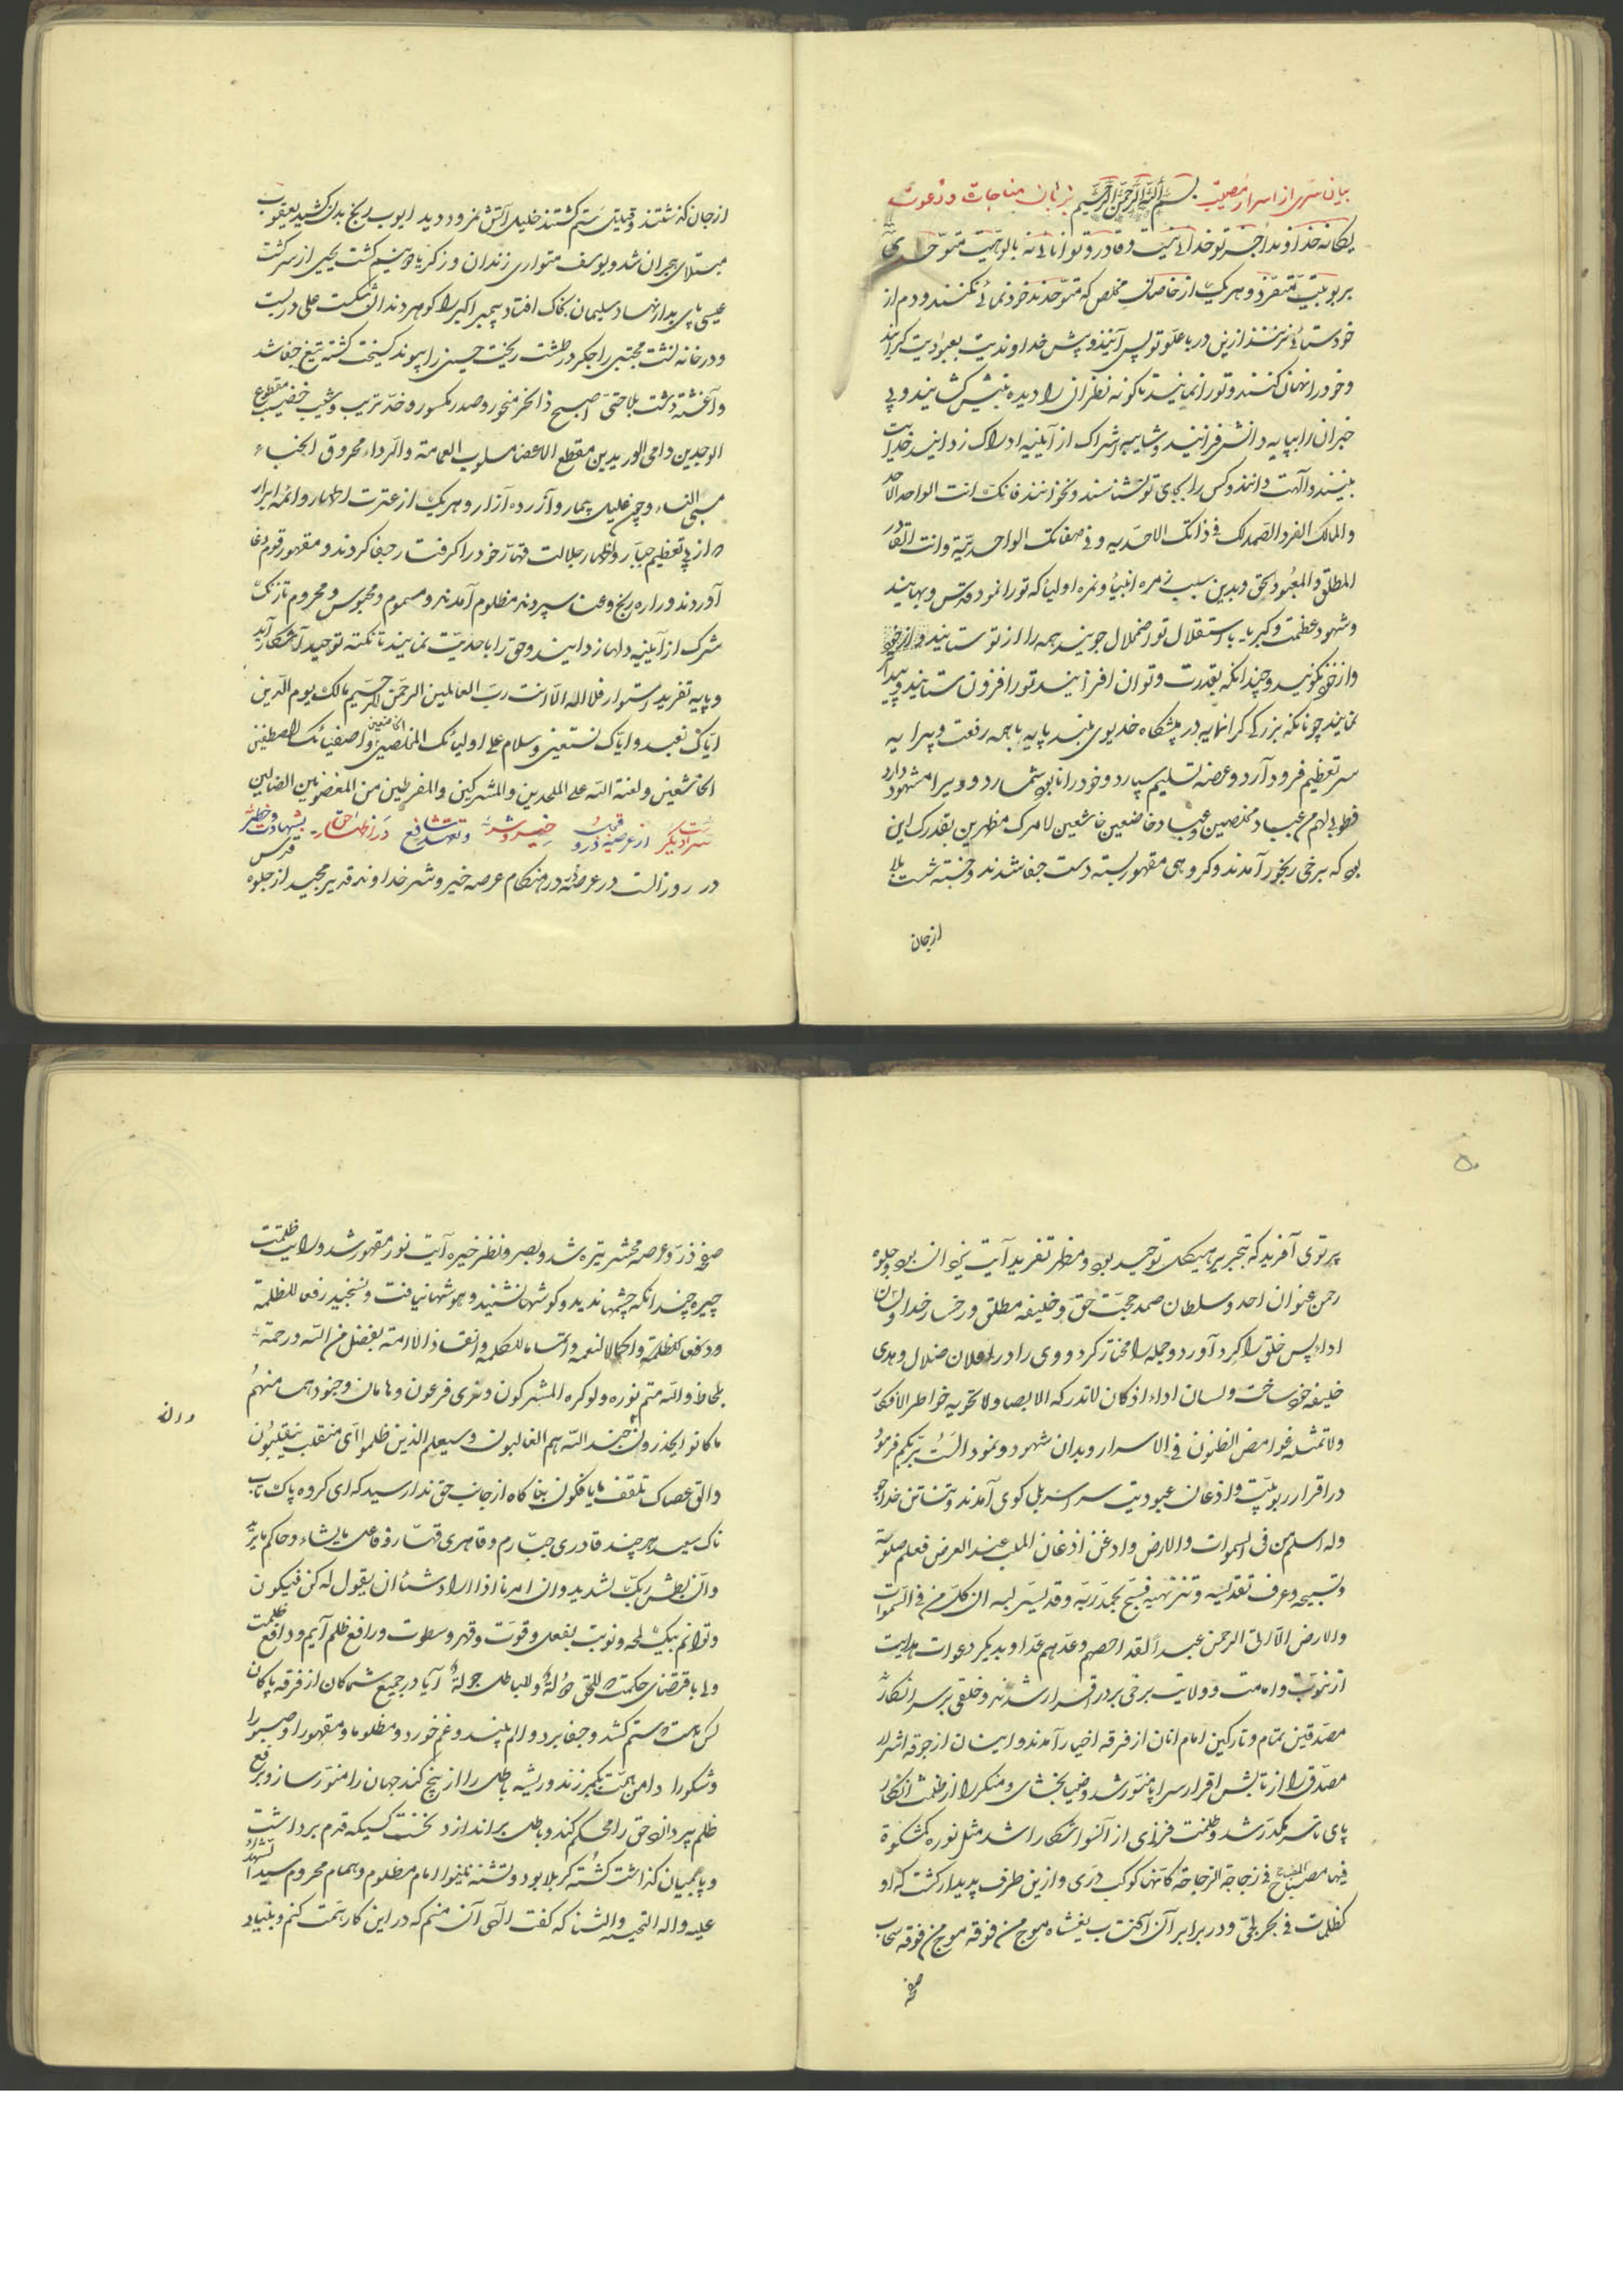 بیان سری از اسرار مصیبت بسم الله الرحمن الرحیم بزبان مناجات و دعوت
یگانه خداوندا جز تو خدائی نیست و قادر و توانائی نه بالوهیت متوحدی
بربوبیت متفرد و هر یک از خاصان مخلص که متوحدند خودنمائی نکنند و دم از
خودستائی نزنند ازین در با علو تو پس آیند و پیش خداوندیت بعبودیت گرایند
و خود را نهان کنند و تو را نمایند تا کوته نظران را دیده بینش گشایند و بی
خبران را بپایه دانش فرانید و شایبه اشراک از آیینه ادراک زدایند خدایت
بینند و الهت دانند و کس را بجای تو نشناسند و نخوانند فانک انت الواحد الاحد
والمالک الفرد الصمد لک فی ذاتک الاحدیه و فی صفاتک الواحدیة و انت القادر
المطلق و المعبود بحق و بدین سبب زمره انبیا و نمره اولیا که تو را نمود قدس و بها بیند
و شهود عظمت و کبریا با استقلال تو اضمحلال جویند همه را از تو ستایند و از خود
و از خود نکونید و چندانکه بقدرت و توان افزایند تو را افزون ستایند و پیدا
نمایند چونانکه بزرگی گرانمایه در پیشگاه خدیوی بلند پایه با همه رفعت و پیرایه
سر تعظیم فرود آرد و عرصه تسلیم سپارد و خود را نابود شمارد و ویرا مشهود دارد
فطوبی لهم من عباد مخلصین و عباد خاضعین خاشعین لامرک مظهرین بقدرک این
بود که برخی رنجور آمدند و گروهی مقهور بسته دست جفا شدند و خسته شست بلا
از جان
از جان گذشتند و قتیل ستم گشتند خلیل آتش نمرود دید ایوب رنج بدن کشید یعقوب
مبتلای هجران شد و یوسف متواری زندان و زکریا دو نیم گشت یحیی از سر گذشت
عیسی پای بدار نهاد سلیمان بخاک افتاد پیمبر اکبر را گوهر دندان شکست علی در بست
و در خانه نشست مجتبی را جگر در طشت ریخت حسین را پیوند گسیخت کشته تیغ جفا شد
و آغشته دشت بلا حتی اصبح ذا نحر منحور و صدر مکسور و خد تریب و شیب خضیب مقطوع
الوجدین دامی الوریدین مقطع الاعضا مسلوب العمامة والرداء محروق الخباء
مسبی النساء و چون علیل بیمار و آزرده آزار و هر یک از عترت اطهار و ائمه ابرار
از پی تعظیم جبار و اظهار جلالت قهار خود را گرفتار جفا کردند و مقهور قوم دغا
آوردند و راه رنج و عنا سپردند مظلوم آمدند و مسموم و محبوس و محروم تا زنگ
شرک از آیینه دلها زدایند و حق را باحدیت نمایند تا نکته توحید آشکار آید
و پایه تفرید استوار فلا اله الا انت رب العالمین الرحمن الرحیم مالک یوم الدین
ایاک نعبد و ایاک نستعین و سلام علی اولیائک المخلصین الخاضعین و اصفیائک المصطفین
الخاشعین و لعنة الله علی الملحدین والمشرکین والمفرطین من المغضوبین الضالین
سر دیگر از عرصه ذر و خیر و شر و تعهد شافع در اظهار حق بشهادت و خطر
در روز الست در عرصه در هنگام عرصه خیر و شر خداوند قدیر مجید از جلوه قدس
پرتوی آفرید که بتجرید هیکل توحید بود و مظهر تفرید آیت یزدان بود و جلوه
رحمن عنوان احد و سلطان صمد حجت حق و خلیفه مطلق و رخسار خدا و لسان
اداء پس خلق را گرد آورد و جمله را مختار کرد و وی را در اعلان ضلال و هدی
خلیفه خود ساخت و لسان اداء اذ کان لا تدرکه الابصار و لا تحویه خواطر الافکار
و لا تمثله غوامض الظنون فی الاسرار و بدان شهود و نمود الست بربکم فرمود
در اقرار ربوبیت و اذعان عبودیت سراسر بلی گوی آمدند و تن خداجو
وله اسلم من فی السموات والارض و اذعن اذعان الملک عند العرض فعلم صلوته
و تسبیحه و عرف تقدیسه و تنزیهه فسبح بحمد ربه و قدیسر لبه ان کل من فی السموات
والارض الا آتی الرحمن عبدا لقد احصیهم و عدهم عدا و بدیگر دعوات هدایت
از نبوت و امامت و ولایت برخی بر در اقرار شدند و خلقی بر سر انکار
مصدقین بتمام و تارکین امام آنان از فرقه اخیار آمدند و اینان از جوقه اشرار
مصدق را از تابش اقرار سراپا منور شد و ضیا بخشای و منکر را از ظلمت انکار
پای تا سر مکدر شد و ظلمت فزای از آنسو آشکارا شد مثل نوره کمشکوة
فیها مصباح المصباح فی زجاجة الزجاجة کانها کوکب دری و ازین طرف پدیدار گشت که او
کظلمات فی بحر لجی و در برابر آن آفتاب یغشاه موج من فوقه موج من فوقه سحاب
صفحه
صفحه ذر و عرصه محشر تیره شد و بصر و نظر خیره آیت نور مقهور شد و رایت ظلمت
چیره چندانکه چشمها ندید و گوشها نشنید و هوشها نیافت و نسنجید رفعا للظلمة
و دفعا للظلمة و اکمالا لنعمه و اتماما للکلمة و انقاذا لامته بفضل من الله و رحمة
بلحاظ والله متم نوره ولو کره المشرکون و نری فرعون و هامان و جنودهما منهم
ما کانوا یحذرون و ان جند الله هم الغالبون و سیعلم الذین ظلموا ای منقلب ینقلبون
و الق عصاک تلقف ما یافکون بناگاه از جانب حق ندا رسید که ای گروه پاک تاب
ناک سپید هر چند قادری جبارم و قاهری قهار و فاعل مایشاء و حاکم مایرید
و ان بطش ربک لشدید و ان امرنا اذا اراد شیئا ان یقول له کن فیکون
و توانم بیک لمحه و نوبت بفعل و قوت و قهر و سطوت و رافع ظلم آیم و دافع ظلمت
ولی باقتضای حکمت للحق دولة و للباطل جولة آیا در جمیع شما کان از فرقه پاکان
کس هست ستم کشد و جفا برد و الم بیند و غم خورد و مظلوما و مقهورا و صبورا
و شکورا دامن همت بکمر زند و ریشه باطل را از بیخ کند جهان را منور سازد و برقع
ظلم بردارد حق را محکم کند و باطل براندازد نخست کسیکه قدم برداشت
و پا بمیان گذاشت کشته کربلا بود و تشنه نینوا امام مظلوم و همام محروم سید الشهداء
علیه واله التحیه والثنا که گفت الهی آن منم که در این کار همت کنم و بنیاد